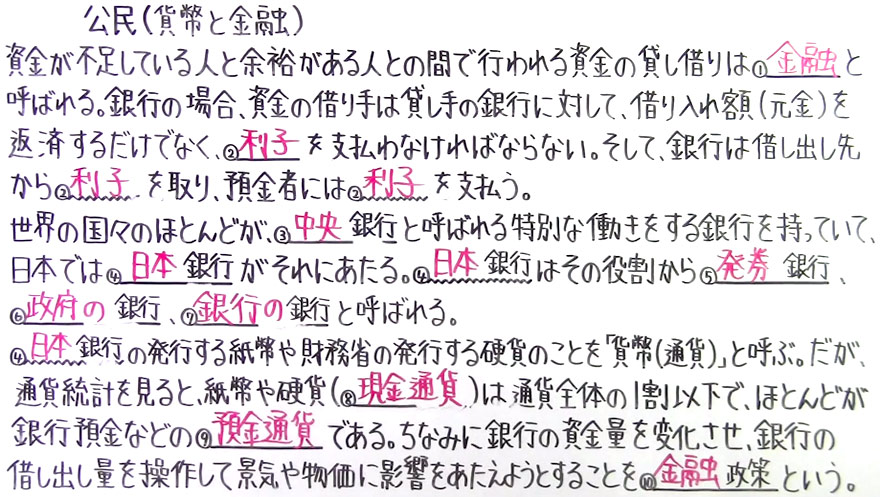 公民(貨幣と金融)
資金が不足している人と余裕がある人との間で行われる資金の貸し借りは①金融と
呼ばれる。銀行の場合、資金の借り手は貸し手の銀行に対して、借り入れ額(元金)を
返済するだけでなく、②利子を支払わなければならない。そして、銀行は借し出し先
から②利子を取り、預金者には②利子を支払う。
世界の国々のほとんどが、③中央銀行と呼ばれる特別な働きをする銀行を持っていて、
日本では④日本銀行がそれにあたる。④日本銀行はその役割から⑤発券銀行、
⑥政府の銀行、⑦銀行の銀行と呼ばれる。
④日本銀行の発行する紙幣や財務省の発行する硬貨のことを「貨幣(通貨)」と呼ぶ。だが、
通貨統計を見ると、紙幣や硬貨(⑧現金通貨)は通貨全体の1割以下で、ほとんどが
銀行預金などの⑨預金通貨である。ちなみに銀行の資金量を変化させ、銀行の
借し出し量を操作して景気や物価に影響をあたえようとすることを⑩金融政策という。